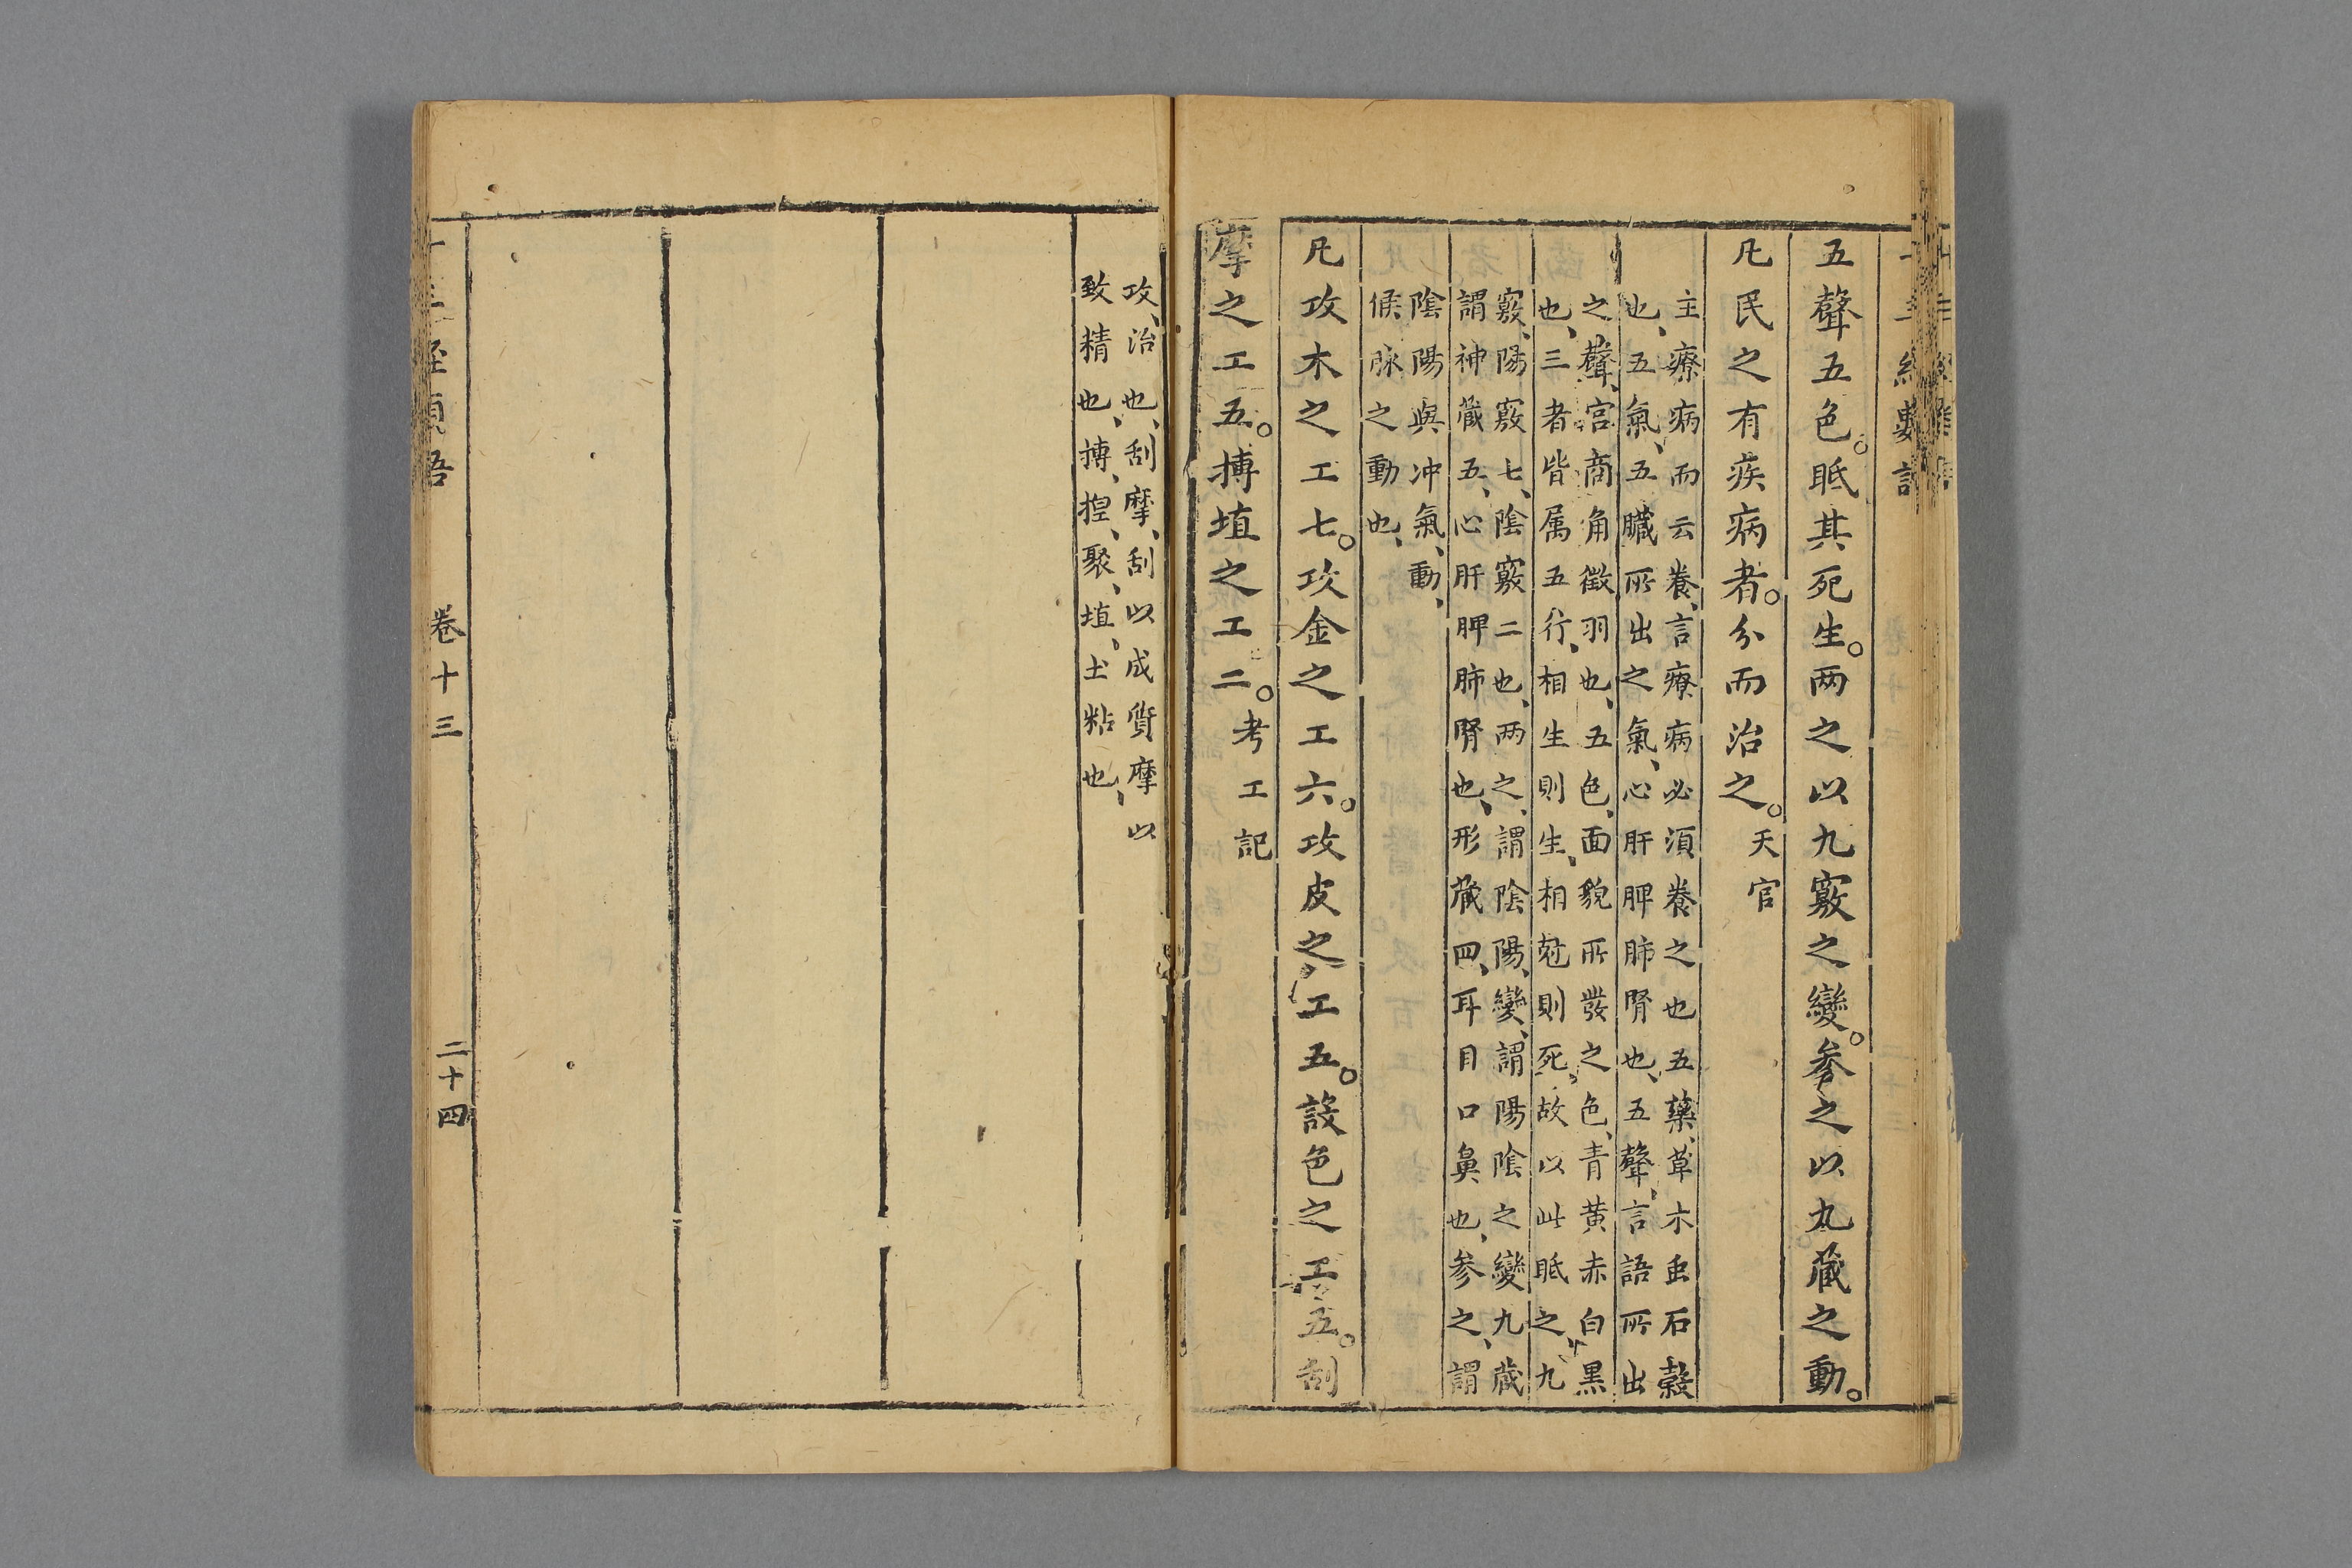 五聲五色。眡其死生。两之以九竅之變。參之以九蔵之動。
凡民之有疾病者。分而治之。天官
主療病而云養、言療病必湏養之也五藥、草木虫石穀
也、五氣、五臟所出之氣、心肝脾肺腎也、五聲、言語所出
之聲、宮商角徵羽也、五色、面貌所發之色、青黄赤白黒
也、三者皆属五行、相生則生、相尅則死、故以此眡之、九
竅、陽竅七、陰竅二也、两之、謂陰陽、變、謂陽陰之變九蔵
謂神蔵五、心肝脾肺腎也、形蔵四、耳目口鼻也、参之、謂
陰陽與冲氣、動、
候脉之動也、
凡攻木之工七。攻金之工六。攻皮之工五。設色之工五。刮
摩之工五。搏埴之工二。考工記
攻、治也、刮摩、刮以成質摩以
致精也、搏、揑、聚、埴、土粘也、
卷十三
二十四